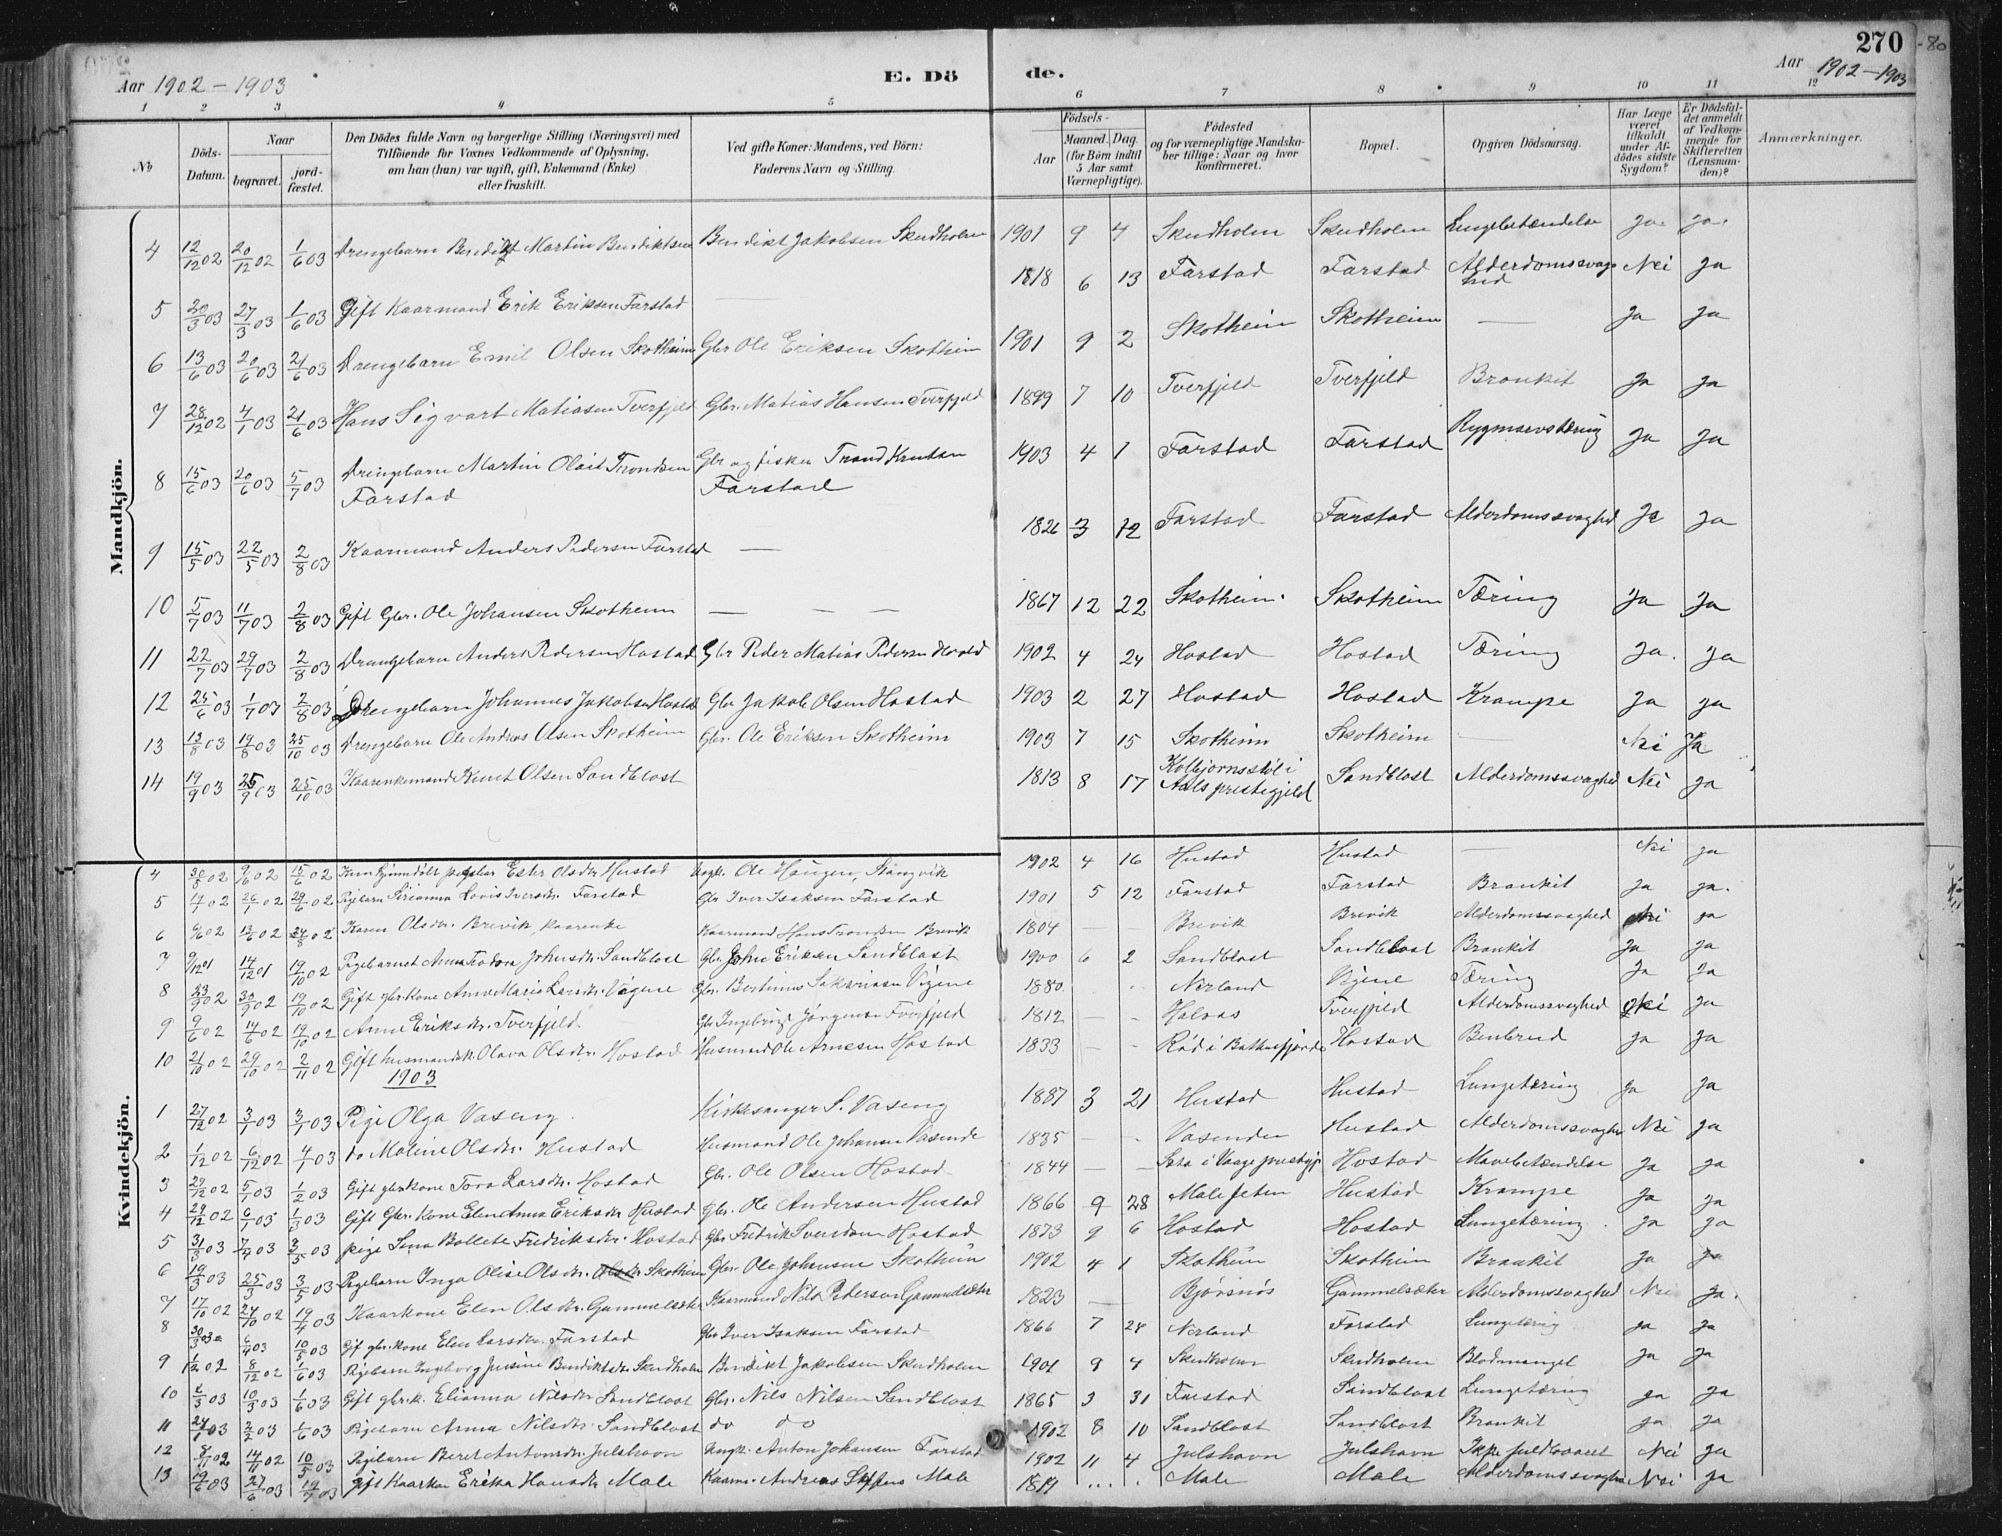 270
Aar 1902 - 1903
E. Dö
de.
Aar 1902 - 1903
1 2 3 4 5 6 7 8 9 10 11 12
No
Döds-Datum.
Naar
begravet.
jord-fæstet.
Den Dödes fulde Navn og borgerlige Stilling (Næringsvei) med
Tilföiende for Voxnes Vedkommende af Oplysning,
om han (hun) var ugift, gift, Enkemand (Enke)
eller fraskilt.
Ved gifte Koner: Mandens, ved Börn:
Faderens Navn og Stilling.
Födsels-
Aar
Maaned. Dag.
(for Börn indtil
5 Aar samt
Værnepligtige).
Födested
og for værnepligtige Mandska-
ber tillige: Naar og hvor
konfirmeret.
Bopæl.
Opgiven Dödsaarsag.
Har Læge
været
tilkaldt
under Af-
dödes sidste
Sygdom?
Er Dödsfal-
det anmeldt
af Vedkom-
mende for
Skifteretten
(Lensman-
den)?
Anmærkninger.
Mandkjön.
4 12/12 02 20/12 02 1/6 03 Drengebarn Bendikt Martin Bendiktsen Bendikt Jakobsen Skudholm 1901 9 4 Skudholm Skudholm Lungebetændelse Ja Ja
5 20/3 03 27/3 03 1/6 03 Gift Kaarmand Erik Eriksen Farstad — 1818 6 13 Farstad Farstad Alderdomssvaghed Nei Ja
6 13/6 03 20/6 03 21/6 03 Drengebarn Emil Olsen Skotheim Gbr Ole Eriksen Skotheim 1901 9 2 Skotheim Skotheim — Ja Ja
7 28/12 02 4/1 03 21/6 03 Hans Sigvart Matiasen Tverfjeld Gbr. Matias Hansen Tverfjeld 1899 7 10 Tverfjeld Tverfjeld Bronkit Ja Ja
8 15/6 03 20/6 03 5/7 03 Drengebarn Martin Olais Trondsen Farstad Gbr og fisker Trond Knutsen Farstad 1903 4 1 Farstad Farstad Rygmarvstæring Ja Ja
9 15/5 03 22/5 03 2/8 03 Kaarmand Anders Pedersen Farstad — 1826 3 12 Farstad Farstad Alderdomssvaghed Ja Ja
10 5/7 03 11/7 03 2/8 03 Gift Gbr. Ole Johansen Skotheim — — — 1867 12 22 Skotheim Skotheim Tæring Ja Ja
11 22/7 03 29/7 03 2/8 03 Drengebarn Anders Pedersen Hostad Gbr Peder Matias Pedersen Hostad 1902 4 24 Hostad Hostad Tæring Ja. Ja
12 25/6 03 1/7 03 2/8 03 Drengebarn Johannes Jakobsen Hostad Gbr Jakob Olsen Hostad 1903 2 27 Hostad Hostad Krampe Ja Ja
13 13/8 03 19/8 03 25/10 03 Drengebarn Ole Andreas Olsen Skotheim Gbr. Ole Eriksen Skotheim 1903 7 15 Skotheim Skotheim — Nei Ja
14 19/9 03 25/9 03 25/10 03 Kaarenkemand Knut Olsen Sandblost 1813 8 17 Kolbjornsstøl i Aals prestegjeld Sandblost Alderdomssvaghed Nei Ja
Kvindekjön.
4 02 9/6 02 15/6 02 Ester Olsdtr Hustad Ungk. Ole Haugen, Stangvik 1902 4 16 Hustad Hustad — Nei Ja
5 17/ 02 26/1 02 29/6 02 Pigebarn Lovis Iversdtr. Farstad Gbr Iver Isaksen Farstad 1901 5 12 Farstad Farstad Bronkit Ja Ja.
6 02 13/6 02 24/8 02 Karen Olsdtr. Brevik kaarenke Kaarmand Hans Trondsen Brevik 1804 — Brevik Brevik Alderdomssvaghed Nei Ja
7 9/12 01 14/12 01 19/10 02 Pigebarnet Anna Teodora Johnsdtr. Sandblost Gbr. John Eriksen Sandblost 1900 6 2 Sandblost Sandblost Bronkit Ja Ja
8 23/9 02 30/9 02 19/10 02 Gift gbr. kone Anne Marie Larsdtr. Vigene Gbr. Bertinus Sakariasen Vigene 1880 - - Nerland Vigene Tæring Ja Ja
9 9/6 02 14/6 02 19/10 02 Anne Eriksdtr. Tverfjeld Gbr Ingebrigt Jørgensen Tverfjeld 1812 — - Halaas Tverfjeld Alderdomssvaghed Nei Ja
10 21/10 02 29/10 02 2/11 02 Gift husmandsk. Olava Olsdtr. Hostad Husmand Ole Arnesen Hostad 1833 — - Rød i Batnfjorden Hostad Benbrud Ja Ja
1903
1 27/12 02 3/1 03 3/1 03 Pige Olga Vaseng Kirkesanger S. Vaseng 1887 3 21 Hustad Hustad Lungetæring Ja Ja
2 1/12 02 6/12 02 4/1 03 do Maline Olsdtr. Hustad Husmand Ole Johansen Vasende 1835 - - Vasenden Hustad Alderdomssvaghed Nei Ja
3 29/12 02 5/1 03 1/2 03 Gift gbr kone Tora Larsdtr. Hostad Gbr. Ole Olsen Hostad 1844 — — i Vaage prestegj Hostad Mavebetændelse Ja Ja
4 29/12 02 6/1 03 1/3 03 Gift Gbr. kone Elen Anna Eriksdtr Hustad Gbr. Ole Andersen Hustad 1866 9 28 Malefeten Hustad Krampe Ja Ja
5 31/3 03 7/4 03 3/5 03 Pige Bollete Fredriksdtr. Hostad Gbr Fredrik Iversen Hostad 1873 9 6 Hostad Hostad Lungetæring Ja Ja
6 19/3 03 25/3 03 3/5 03 Pigebarn Inga Olise Olsdtr. Skotheim Gbr. Ole Johansen Skotheim 1902 4 1 Skotheim Skotheim Bronkit Ja Ja
7 17/10 02 24/10 02 19/4 03 Kaarkone Elen Olsdtr. Gammelsæter Kaarmand Nils Pedersen Gammelsæter 1823 — Bjørsnøs Gammelsæter Alderdomssvaghed Nei Ja.
8 30/3 03 6/4 03 10/5 03 Gif gbr. kone Elen Larsdtr. Farstad Gbr Iver Isaksen Farstad 1866 7 28 Nerland Farstad Lungetæring Ja Ja
9 1/12 02 8/12 02 1/6 03 Pigebarn Ingeborg Jensine Bendiktsdtr Skudholm Bendikt Jakobsen Skudholm 1901 9 4 Skudholm Skudholm Blodmangel Ja Ja
10 2/3 03 10/3 03 1/6 03 Gift gbr.k. Elianna Nilsdtr Sandblost Gbr. Nils Nilsen Sandblost 1865 3 31 Farstad Sandblost Lungetæring Ja Ja
11 24/1 03 2/2 03 1/6 03 Pigebarn Anna Nilsdtr. Sandblost do do 1902 8 10 Sandblost Sandblost Bronkit Ja Ja
12 8/11 02 14/11 02 10/5 03 Pigebarn Beret Antonsdtr. Julshavn Ungk. Anton Johansen Farstad 1902 11 4 Julshavn Julshavn Ikke fuldbaaret Nei Ja
13 19/6 03 27/6 03 03 Gift Kaarkone Erika Hansdtr Male Kaarm. Andreas Male 1819 ... . Male Male Alderdomssvaghed Nei Ja